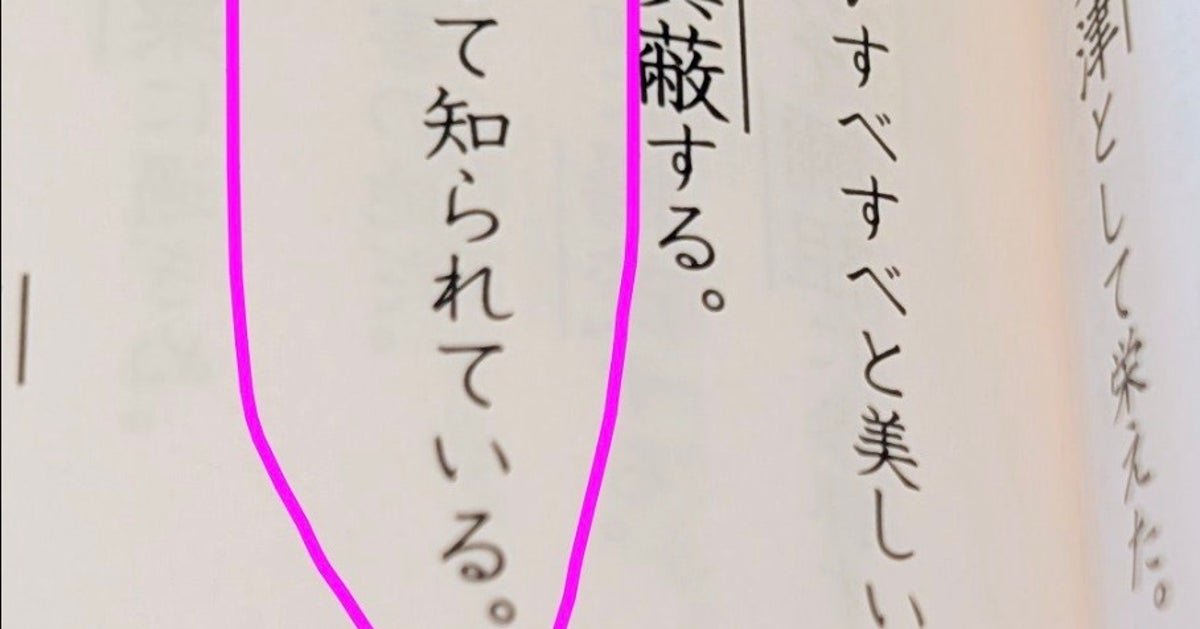 津として栄えた。
すべすべと美しい
蔽する。
て知られている。